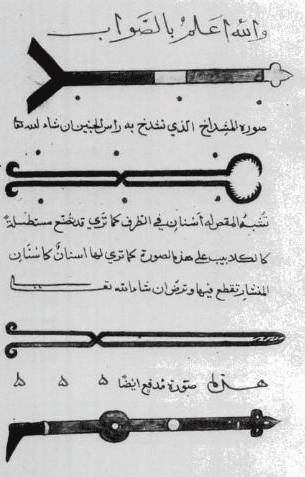 والله أعلم بالصواب
صورة المشداخ الذي تشدخ به رأس الجنين إن شاء الله
تشبه المقص له أسنان في الطرف كما ترى قد تصنع مستطيلة
كالكلاليب على هذه الصورة كما ترى لها أسنان كأسنان
المنشار تقطع فيها وترض إن شاء الله تعالى
هذه صورة مدفع أيضا